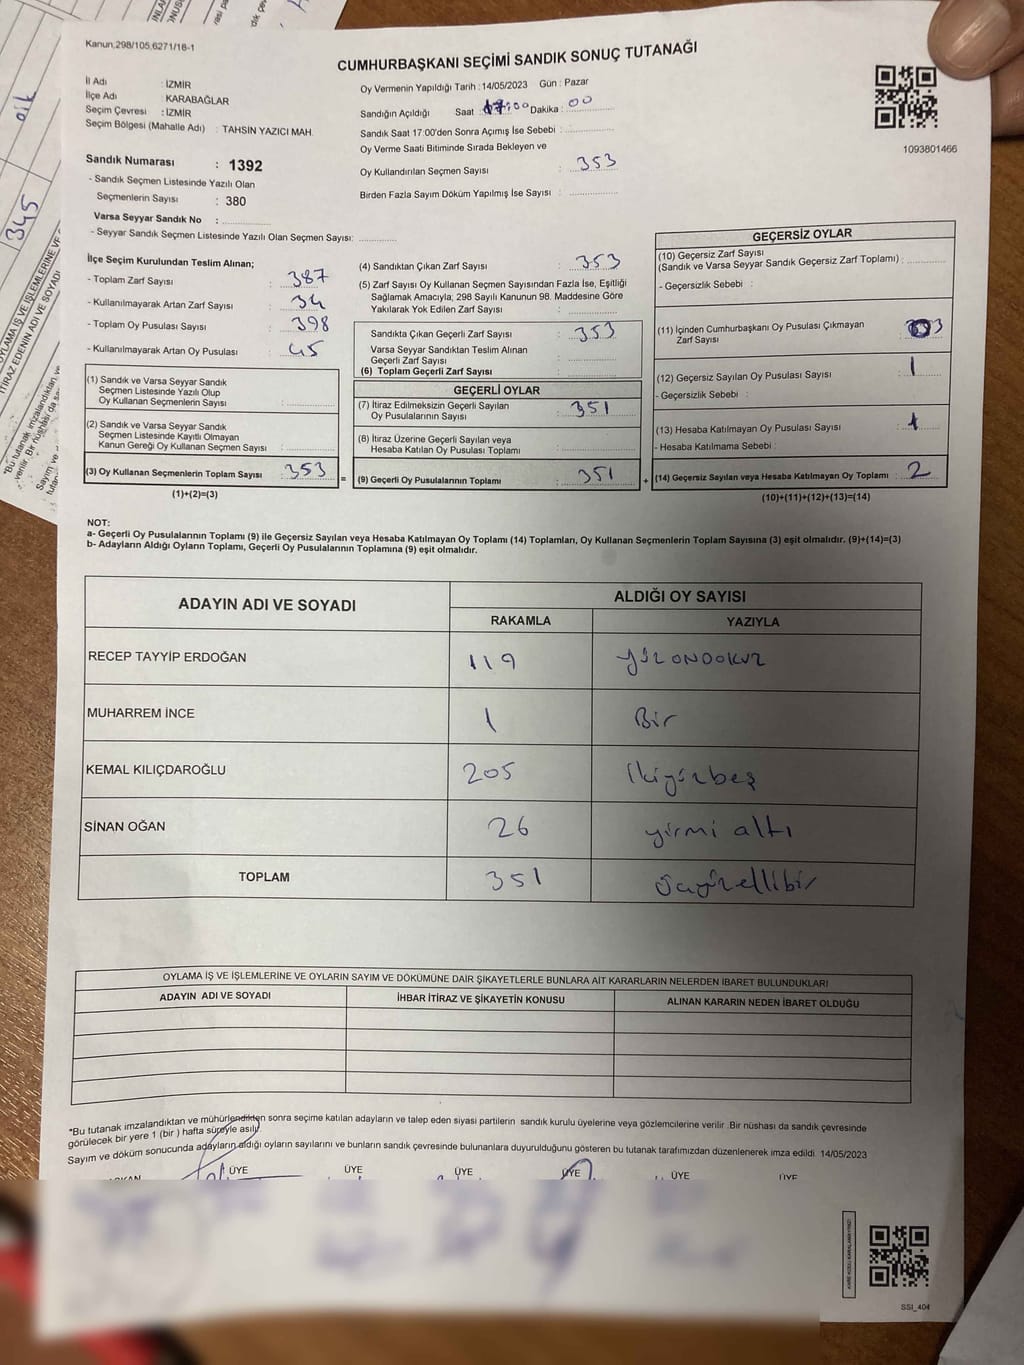 Kanun,298/105,6271/18-1
CUMHURBAŞKANI SEÇİMİ SANDIK SONUÇ TUTANAĞI
İl Adı : İZMİR
İlçe Adı : KARABAĞLAR
Seçim Çevresi : İZMİR
Seçim Bölgesi (Mahalle Adı) : TAHSİN YAZICI MAH.
Sandık Numarası : 1392
- Sandık Seçmen Listesinde Yazılı Olan
Seçmenlerin Sayısı : 380
Varsa Seyyar Sandık No :
- Seyyar Sandık Seçmen Listesinde Yazılı Olan Seçmen Sayısı:
Oy Vermenin Yapıldığı Tarih : 14/05/2023 Gün : Pazar
Sandığın Açıldığı Saat 17:00 Dakika : 00
Sandık Saat 17:00'den Sonra Açımış İse Sebebi :
Oy Verme Saati Bitiminde Sırada Bekleyen ve
Oy Kullandırılan Seçmen Sayısı : 353
Birden Fazla Sayım Döküm Yapılmış İse Sayısı :
1093801466
İlçe Seçim Kurulundan Teslim Alınan;
- Toplam Zarf Sayısı : 387
- Kullanılmayarak Artan Zarf Sayısı : 34
- Toplam Oy Pusulası Sayısı : 398
- Kullanılmayarak Artan Oy Pusulası : 45
(1) Sandık ve Varsa Seyyar Sandık
Seçmen Listesinde Yazılı Olup
Oy Kullanan Seçmenlerin Sayısı :
(2) Sandık ve Varsa Seyyar Sandık
Seçmen Listesinde Kayıtlı Olmayan
Kanun Gereği Oy Kullanan Seçmen Sayısı :
(3) Oy Kullanan Seçmenlerin Toplam Sayısı : 353
(1)+(2)=(3)
(4) Sandıktan Çıkan Zarf Sayısı : 353
(5) Zarf Sayısı Oy Kullanan Seçmen Sayısından Fazla İse, Eşitliği
Sağlamak Amacıyla, 298 Sayılı Kanunun 98. Maddesine Göre
Yakılarak Yok Edilen Zarf Sayısı :
Sandıkta Çıkan Geçerli Zarf Sayısı : 353
Varsa Seyyar Sandıktan Teslim Alınan
Geçerli Zarf Sayısı :
(6) Toplam Geçerli Zarf Sayısı :
GEÇERLİ OYLAR
(7) İtiraz Edilmeksizin Geçerli Sayılan
Oy Pusulalarının Sayısı : 351
(8) İtiraz Üzerine Geçerli Sayılan veya
Hesaba Katılan Oy Pusulaları Toplamı :
= (9) Geçerli Oy Pusulalarının Toplamı : 351
GEÇERSİZ OYLAR
(10) Geçersiz Zarf Sayısı
(Sandık ve Varsa Seyyar Sandık Geçersiz Zarf Toplamı) :
- Geçersizlik Sebebi :
(11) İçinden Cumhurbaşkanı Oy Pusulası Çıkmayan
Zarf Sayısı :
(12) Geçersiz Sayılan Oy Pusulası Sayısı : 1
- Geçersizlik Sebebi :
(13) Hesaba Katılmayan Oy Pusulası Sayısı : 1
- Hesaba Katılmama Sebebi :
+ (14) Geçersiz Sayılan veya Hesaba Katılmayan Oy Toplamı : 2
(10)+(11)+(12)+(13)=(14)
NOT:
a- Geçerli Oy Pusulalarının Toplamı (9) ile Geçersiz Sayılan veya Hesaba Katılmayan Oy Toplamı (14) Toplamları, Oy Kullanan Seçmenlerin Toplam Sayısına (3) eşit olmalıdır. (9)+(14)=(3)
b- Adayların Aldığı Oyların Toplamı, Geçerli Oy Pusulalarının Toplamına (9) eşit olmalıdır.
ADAYIN ADI VE SOYADI ALDIĞI OY SAYISI
RAKAMLA YAZIYLA
RECEP TAYYİP ERDOĞAN 119 yüzondokuz
MUHARREM İNCE 1 Bir
KEMAL KILIÇDAROĞLU 205 ikiyüzbeş
SİNAN OĞAN 26 yirmi altı
TOPLAM 351 üçyüzellibir
OYLAMA İŞ VE İŞLEMLERİNE VE OYLARIN SAYIM VE DÖKÜMÜNE DAİR ŞİKAYETLERLE BUNLARA AİT KARARLARIN NELERDEN İBARET BULUNDUKLARI
ADAYIN ADI VE SOYADI İHBAR İTİRAZ VE ŞİKAYETİN KONUSU ALINAN KARARIN NEDEN İBARET OLDUĞU
*Bu tutanak imzalandıktan ve mühürlendikten sonra seçime katılan adayların ve talep eden siyasi partilerin sandık kurulu üyelerine veya gözlemcilerine verilir .Bir nüshası da sandık çevresinde
görülecek bir yere 1 (bir ) hafta süreyle asılır.
Sayım ve döküm sonucunda adayların aldığı oyların sayılarını ve bunların sandık çevresinde bulunanlara duyurulduğunu gösteren bu tutanak tarafımızdan düzenlenerek imza edildi. 14/05/2023
ÜYE ÜYE ÜYE ÜYE ÜYE ÜYE
SSI_404
345